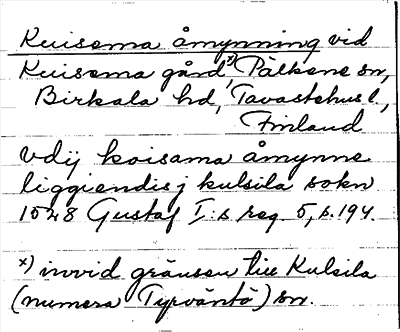 Kuisema åmynning vid
Kuisema gård x), Pälkene sn,
Birkala hd, Tavastehus l.,
Finland
vdij koisama åmynne
liggiendis j kulsila sokn
1528 Gustaf I:s reg. 5, s. 194.
x) invid gränsen till Kulsila
(numera Tyrväntö) sn.